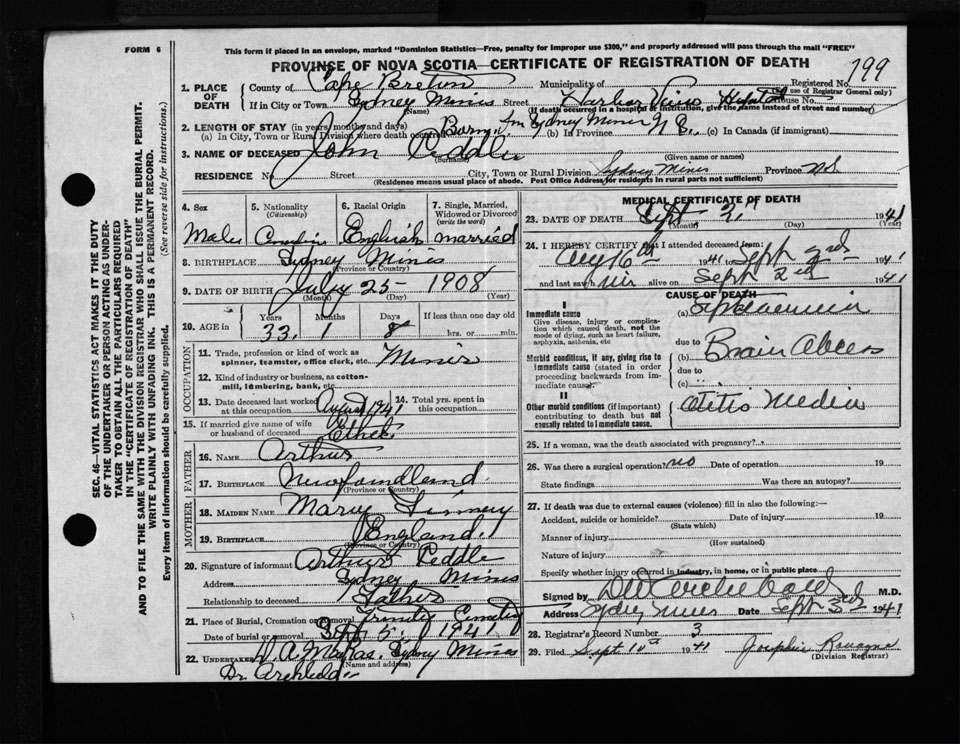 FORM 6
This form if placed in an envelope, marked "Dominion Statistics—Free, penalty for improper use $300," and properly addressed will pass through the mail "FREE"
PROVINCE OF NOVA SCOTIA—CERTIFICATE OF REGISTRATION OF DEATH
SEC. 46—VITAL STATISTICS ACT MAKES IT THE DUTY
OF THE UNDERTAKER OR PERSON ACTING AS UNDER-
TAKER TO OBTAIN ALL THE PARTICULARS REQUIRED
IN THE "CERTIFICATE OF REGISTRATION OF DEATH"
AND TO FILE THE SAME WITH THE DIVISION REGISTRAR WHO SHALL ISSUE THE BURIAL PERMIT.
WRITE PLAINLY WITH UNFADING INK. THIS IS A PERMANENT RECORD.
Every item of information should be carefully supplied. (See reverse side for instructions.)
Registered No. 799
(For use of Registrar General only)
1. PLACE OF DEATH
County of Cape Breton Municipality of
If in City or Town Sydney Mines Street Harbor View Hospital House No.
(Name) (If death occurred in a hospital or institution, give the name instead of street and number)
2. LENGTH OF STAY (in years, months and days)
(a) In City, Town or Rural Division where death occurred Born in Sydney Mines (b) In Province (c) In Canada (if immigrant)
3. NAME OF DECEASED John Peddle
(Surname) (Given name or names)
RESIDENCE No. Street City, Town or Rural Division Sydney Mines Province N.S.
(Residence means usual place of abode. Post Office Address for residents in rural parts not sufficient)
4. Sex
Male
5. Nationality (Citizenship)
Canadian
6. Racial Origin
English
7. Single, Married, Widowed or Divorced (write the word)
married
8. BIRTHPLACE Sydney Mines
(Province or Country)
9. DATE OF BIRTH July 25 1908
(Month) (Day) (Year)
10. AGE in Years Months Days If less than one day old
33 1 8 hrs. or min.
OCCUPATION
11. Trade, profession or kind of work as spinner, teamster, office clerk, etc. Miner
12. Kind of industry or business, as cotton-mill, lumbering, bank, etc.
13. Date deceased last worked at this occupation August 1941
14. Total yrs. spent in this occupation
15. If married give name of wife or husband of deceased Ethel
FATHER
16. NAME Arthur
17. BIRTHPLACE Newfoundland
(Province or Country)
MOTHER
18. MAIDEN NAME Mary
19. BIRTHPLACE England
(Province or Country)
20. Signature of informant Arthur Peddle
Address Sydney Mines
Relationship to deceased Father
21. Place of Burial, Cremation or Removal Trinity Cemetery
Date of burial or removal Sept 5 1941
22. UNDERTAKER Sydney Mines
(Name and address)
Dr. Archibald
MEDICAL CERTIFICATE OF DEATH
23. DATE OF DEATH Sept 2, 1941
(Month) (Day) (Year)
24. I HEREBY CERTIFY that I attended deceased from:
Aug 16th 1941 to Sept 2nd 1941
and last saw him alive on Sept 2nd 1941
CAUSE OF DEATH
I
Immediate cause
Give disease, injury or complication which caused death, not the mode of dying, such as heart failure, asphyxia, asthenia, etc
(a) Septicaemia
due to
Morbid conditions, if any, giving rise to immediate cause (stated in order proceeding backwards from immediate cause)
(b) Brain Abcess
due to
(c)
II
Other morbid conditions (if important) contributing to death but not causally related to immediate cause.
Otitis Media
25. If a woman, was the death associated with pregnancy?
26. Was there a surgical operation? no Date of operation 19
State findings Was there an autopsy?
27. If death was due to external causes (violence) fill in also the following:—
Accident, suicide or homicide? Date of injury 19
(State which)
Manner of injury
(How sustained)
Nature of injury
Specify whether injury occurred in industry, in home, or in public place
Signed by M.D.
Address Sydney Mines Date Sept 3rd 1941
28. Registrar's Record Number 3
29. Filed Sept 10th 1941 Josephine
(Division Registrar)